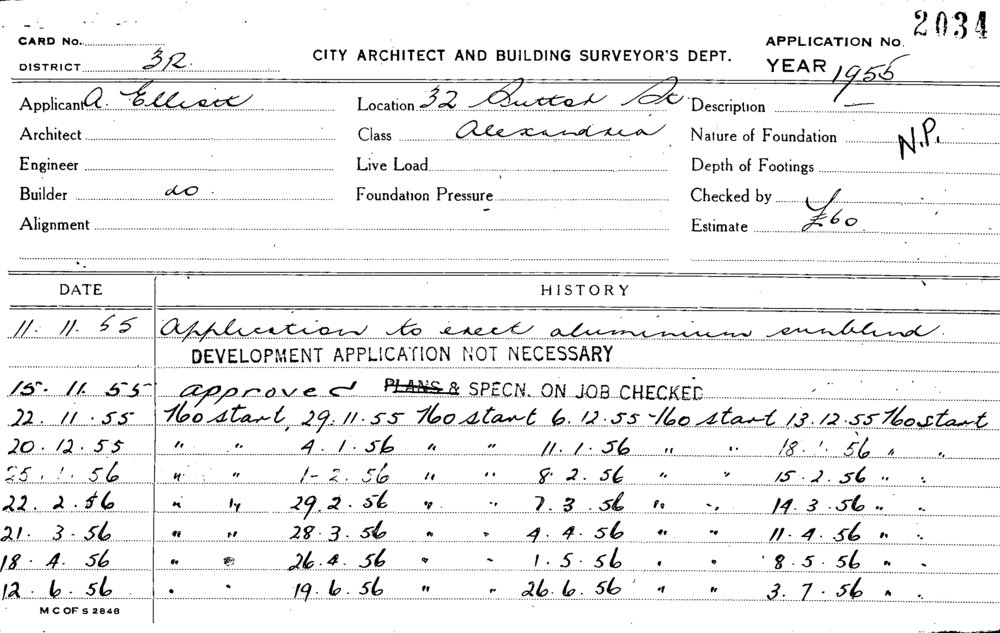 2034
CARD No.
DISTRICT 3R.
CITY ARCHITECT AND BUILDING SURVEYOR'S DEPT.
APPLICATION No.
YEAR 1955
Applicant A. Elliott Location 32 St Description —
Architect Class Alexandria Nature of Foundation N.P.
Engineer Live Load Depth of Footings
Builder do. Foundation Pressure Checked by
Alignment Estimate £60
DATE HISTORY
11. 11. 55 Application to erect aluminium sunblind.
DEVELOPMENT APPLICATION NOT NECESSARY
15. 11. 55 approved PLANS & SPECN. ON JOB CHECKED
22. 11. 55 No start, 29. 11. 55 No start 6. 12. 55 - No start 13. 12. 55 No start
20. 12. 55 " " 4. 1. 56 " " 11. 1. 56 " " 18. 1. 56 " "
25. 1. 56 " " 1-2. 56 " " 8. 2. 56 " " 15. 2. 56 " "
22. 2. 56 " " 29. 2. 56 " " 7. 3. 56 " " 14. 3. 56 " "
21. 3. 56 " " 28. 3. 56 " " 4. 4. 56 " " 11. 4. 56 " "
18. 4. 56 " " 26. 4. 56 " " 1. 5. 56 " " 8. 5. 56 " "
12. 6. 56 " " 19. 6. 56 " " 26. 6. 56 " " 3. 7. 56 " "
M C OF S 2848